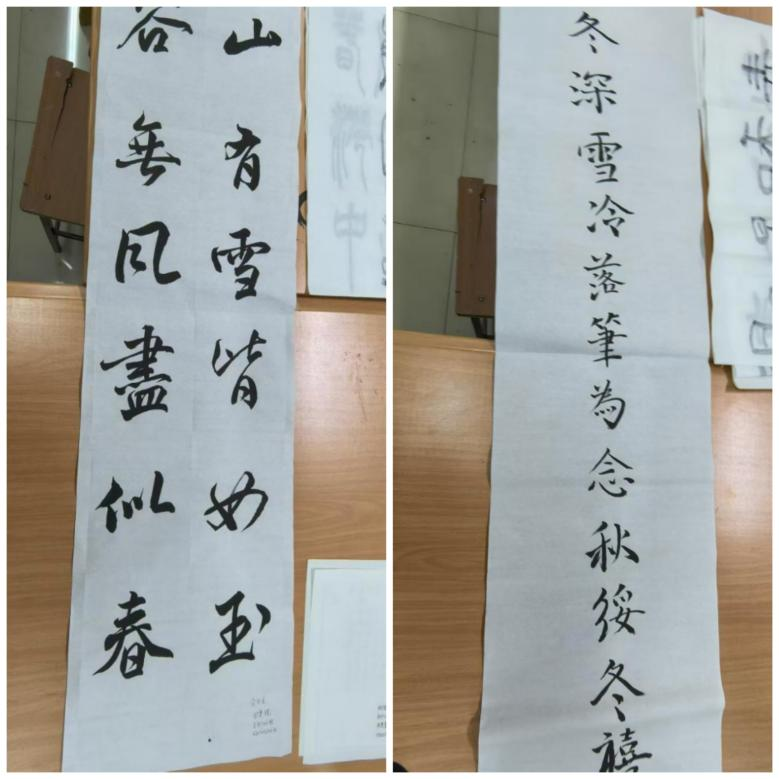 山有雪皆如玉
谷無風盡似春
冬深雪冷落筆為念秋綏冬禧